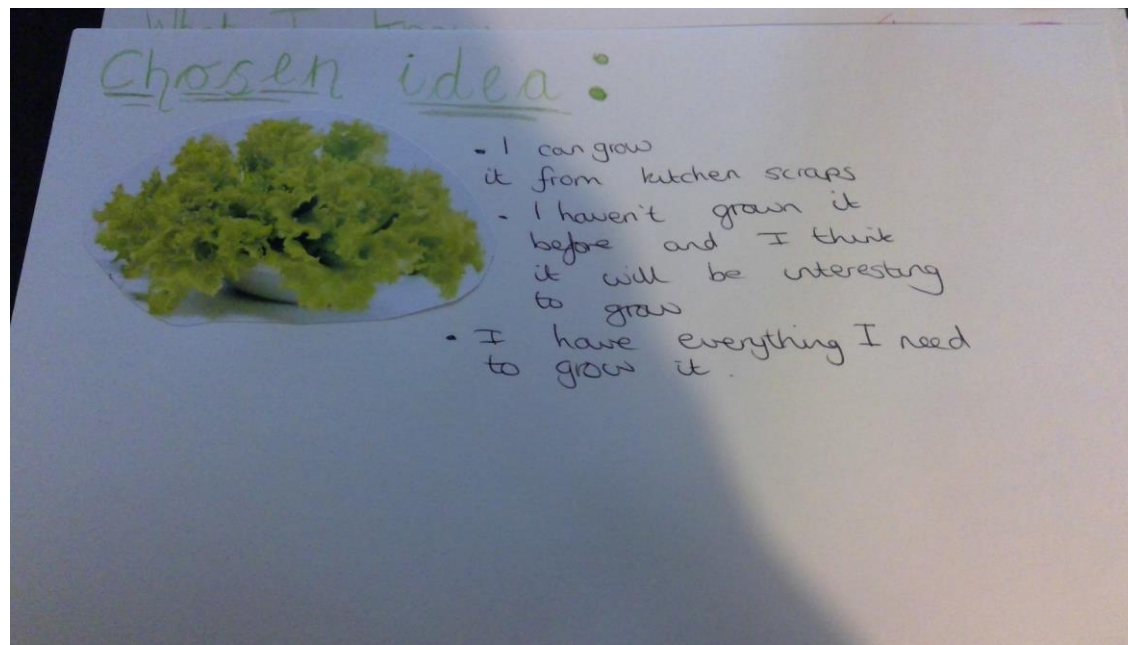 What I know
Chosen idea:
- I can grow
it from kitchen scraps
- I haven't grown it
before and I think
it will be interesting
to grow
- I have everything I need
to grow it.